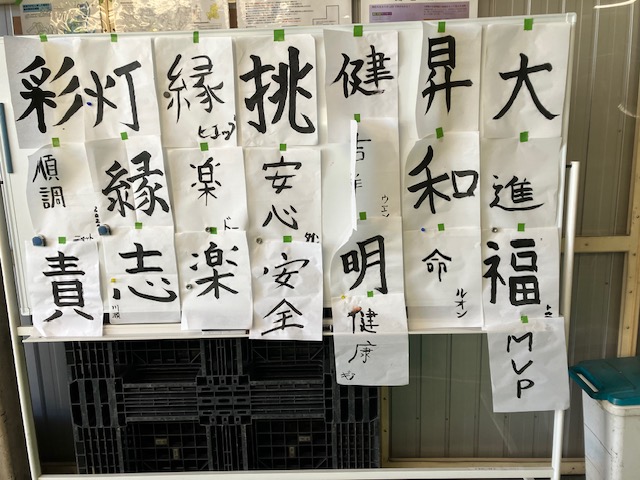 彩
灯
縁
挑
健
昇
大
順調
縁
楽
安心
和
進
責
志
楽
安全
明
命
ルオン
福
健康
MVP